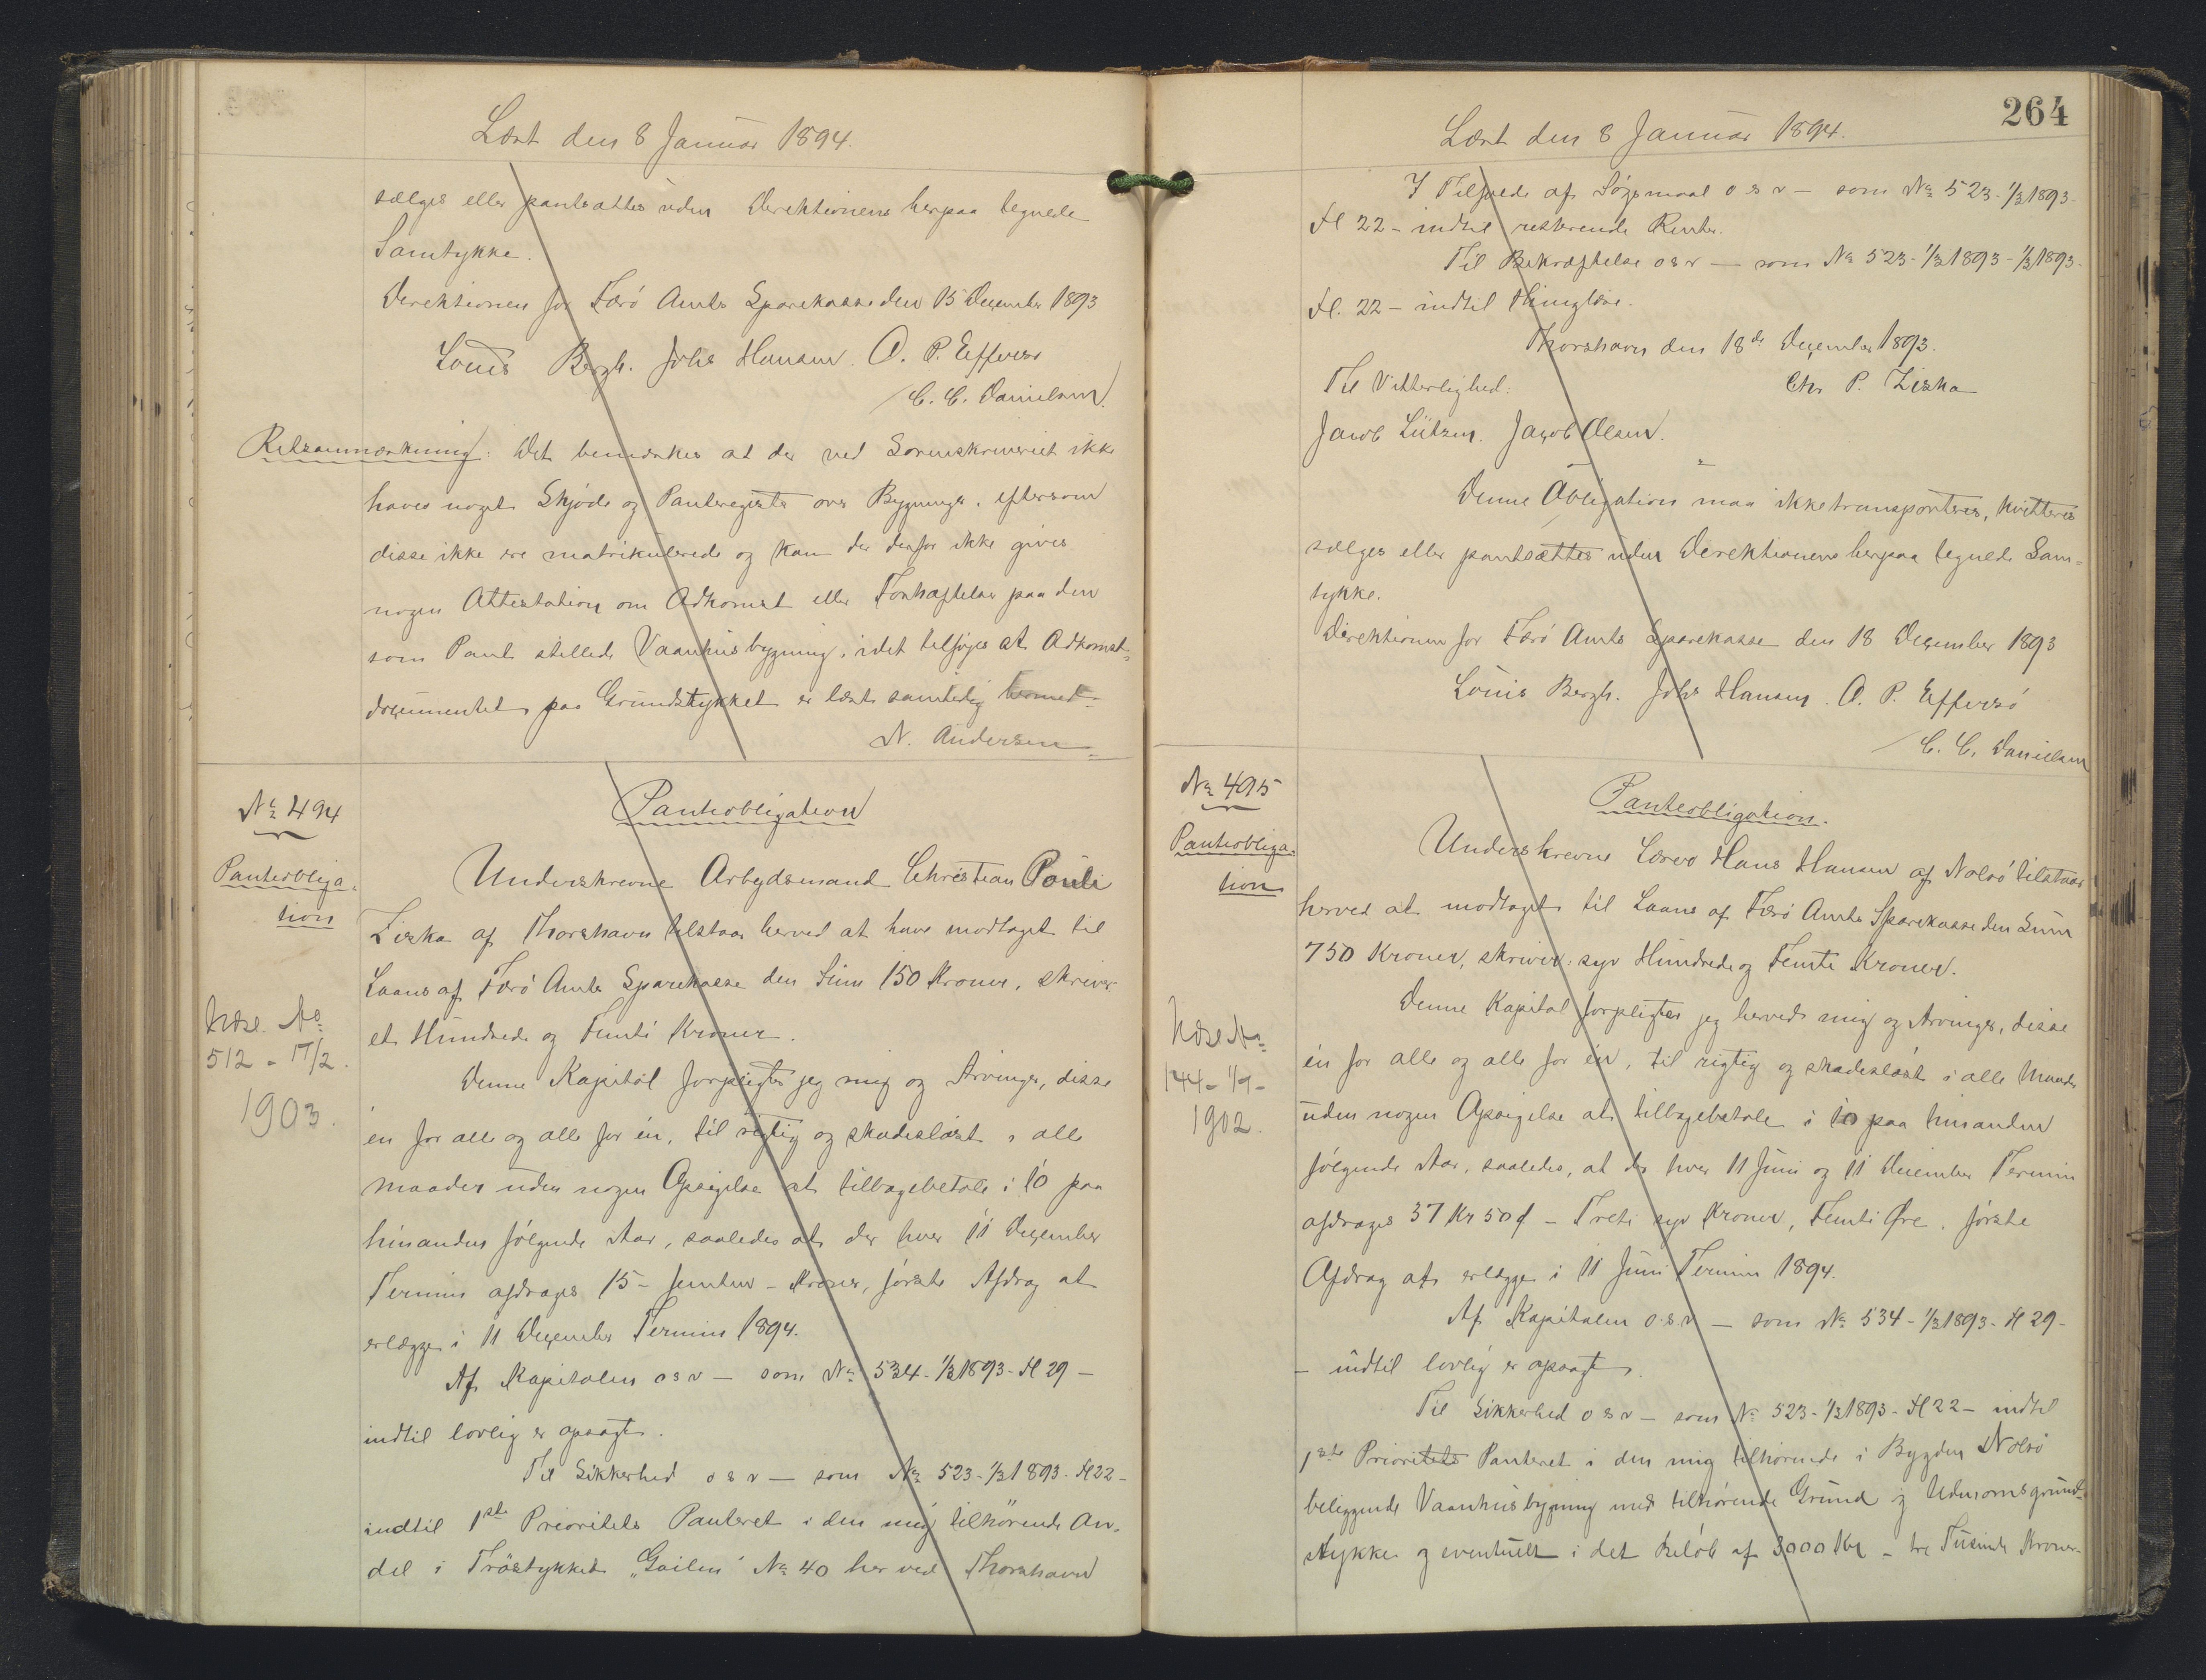 Læst den 8 Januar 1894.
sælges eller pantsættes uden Direktionens herpaa tegnede
Samtykke.
Direktionen for Færö Amts Sparekasse den 15 December 1893
Louis Bergh. Johs Hansen. O. P. Effersö
C. C. Danielsen.
Retsanmærkning: Det bemærkes at der ved Sorenskriveriet ikke
haves noget Skjöde og Panteregister over Bygninger, eftersom
disse ikke ere matrikulerede og kan der derfor ikke gives
nogen Attestation om Adkomst eller Forhæftelser paa den
som Pant stillede Vaanhusbygning, idet tilföjes at Adkomst-
documentet paa Grundstykket er læst samtidig hermed.
N. Andersen
No 494
Panteobliga-
tion
Udsl. No
512 - 17/2
1903.
Panteobligation
Underskrevne Arbejdsmand Christian Pouli
Ziska af Thorshavn tilstaar herved at have modtaget til
Laans af Færö Amts Sparekasse den Sum 150 Kroner, skriver
et Hundrede og Femti Kroner.
Denne Kapital forpligter jeg mig og Arvinger, disse
én for alle og alle for én, til rigtig og skadesløst i alle
Maader uden nogen Opsigelse at tilbagebetale i 10 paa
hinanden følgende Aar, saaledes at der hver 11 December
Termin afdrages 15 - femten - Kroner, første Afdrag at
erlægge i 11 December Termin 1894.
Af Kapitalen o s v - som No 534 - 1/3 1893 - H 29 -
indtil lovlig er opsagt.
Til Sikkerhed o s v - som No 523 - 1/3 1893 - H 22 -
indtil 1ste Prioritets Panteret i den mig tilhørende An-
del i Tröstykket "Gailin" No 40 her ved Thorshavn
264
Læst den 8 Januar 1894.
I Tilfælde af Søgsmaal o s v - som No 523 - 1/3 1893 -
H 22 - indtil resterende Renter.
Til Bekræftelse o s v - som No 523 - 1/3 1893 - 1/3 1893 -
H. 22 - indtil thinglæse.
Thorshavn den 18de December 1893.
Til Vitterlighed. Chr P. Ziska
Jacob Lützen. Jacob Olsen.
Denne Obligation maa ikke transporteres, kvitteres
sælges eller pantsættes uden Direktionens herpaa tegnede Sam-
tykke.
Direktionen for Færö Amts Sparekasse den 18 December 1893
Louis Bergh. Johs Hansen. O. P. Effersö
C. C. Danielsen
No 495
Panteobliga-
tion
Udsl No
144 - 1/9 -
1902.
Panteobligation.
Underskrevne Lærer Hans Hansen af Nolsö tilstaar
herved at modtaget til Laans af Færö Amts Sparekasse den Sum
750 Kroner, skriver: syv Hundrede og Femti Kroner.
Denne Kapital forpligter jeg herved mig og Arvinger, disse
én for alle og alle for én, til rigtig og skadesløst i alle Maader
uden nogen Opsigelse at tilbagebetale i 10 paa hinanden
følgende Aar, saaledes, at der hver 11 Juni og 11 December Termin
afdrages 37 Kr 50 Ø - Treti syv Kroner, Femti Øre, første
Afdrag at erlægge i 11 Juni Termin 1894.
Af Kapitalen o s v - som No 534 - 1/3 1893 - H 29 -
- indtil lovlig er opsagt.
Til Sikkerhed o s v - som No 523 - 1/3 1893 - H 22 - indtil
1ste Prioritets Panteret i den mig tilhørende i Bygden Nolsö
beliggende Vaanhusbygning med tilhørende Grund og Udmarksgrund-
stykke og eventuelt i det Beløb af 3000 Kr - tre Tusinde Kroner -